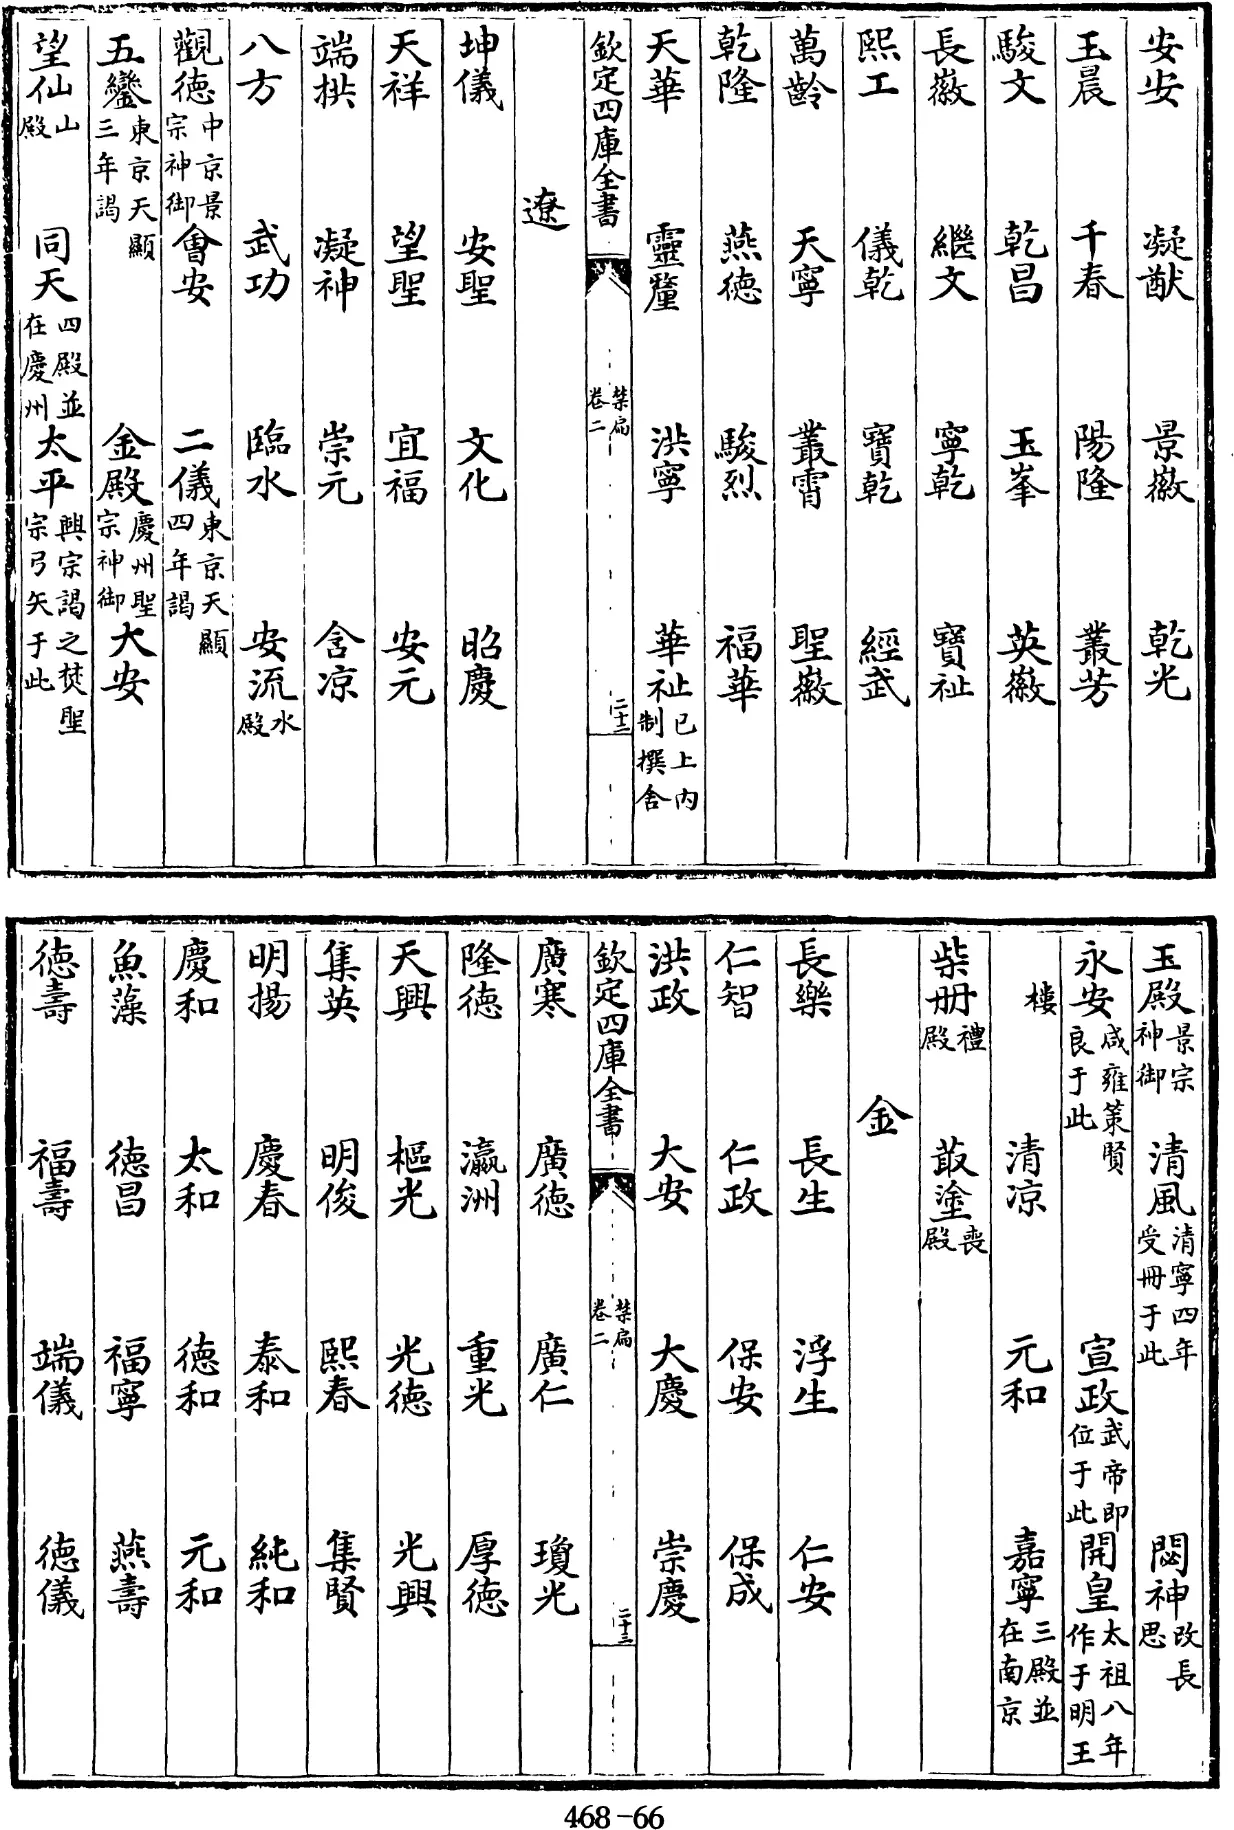 安安 凝猷 景徽 乾光
玉晨 千春 陽隆 叢芳
駿文 乾昌 玉峯 英徽
長徽 繼文 寧乾 寶祉
熙工 儀乾 寶乾 經武
萬齡 天寧 叢霄 聖徽
乾隆 燕徳 駿烈 福華
天華 靈釐 洪寧 華祉已上内制撰舎
欽定四庫全書 禁扁卷二 二十二
遼
坤儀 安聖 文化 昭慶
天祥 望聖 宜福 安元
端拱 凝神 崇元 含凉
八方 武功 臨水 安流水殿
觀徳中京景宗神御 會安 二儀東京天顯四年謁
五鑾東京天顯三年謁 金殿慶州聖宗神御 大安
望仙山殿 同天四殿並在慶州 太平興宗謁之焚聖宗弓矢于此
玉殿景宗神御 清風清寧四年受冊于此 閟神改長思
永安咸雍策賢良于此 宣政武帝即位于此 開皇太祖八年作于明王
樓 清凉 元和 嘉寧三殿並在南京
柴册禮殿 菆塗喪殿
金
長樂 長生 浮生 仁安
仁智 仁政 保安 保成
洪政 大安 大慶 崇慶
欽定四庫全書 禁扁卷二 二十三
廣寒 廣徳 廣仁 瓊光
隆徳 瀛洲 重光 厚徳
天興 樞光 光徳 光興
集英 明俊 熙春 集賢
明揚 慶春 泰和 純和
慶和 太和 徳和 元和
魚藻 徳昌 福寧 燕壽
徳壽 福壽 端儀 徳儀
468-66